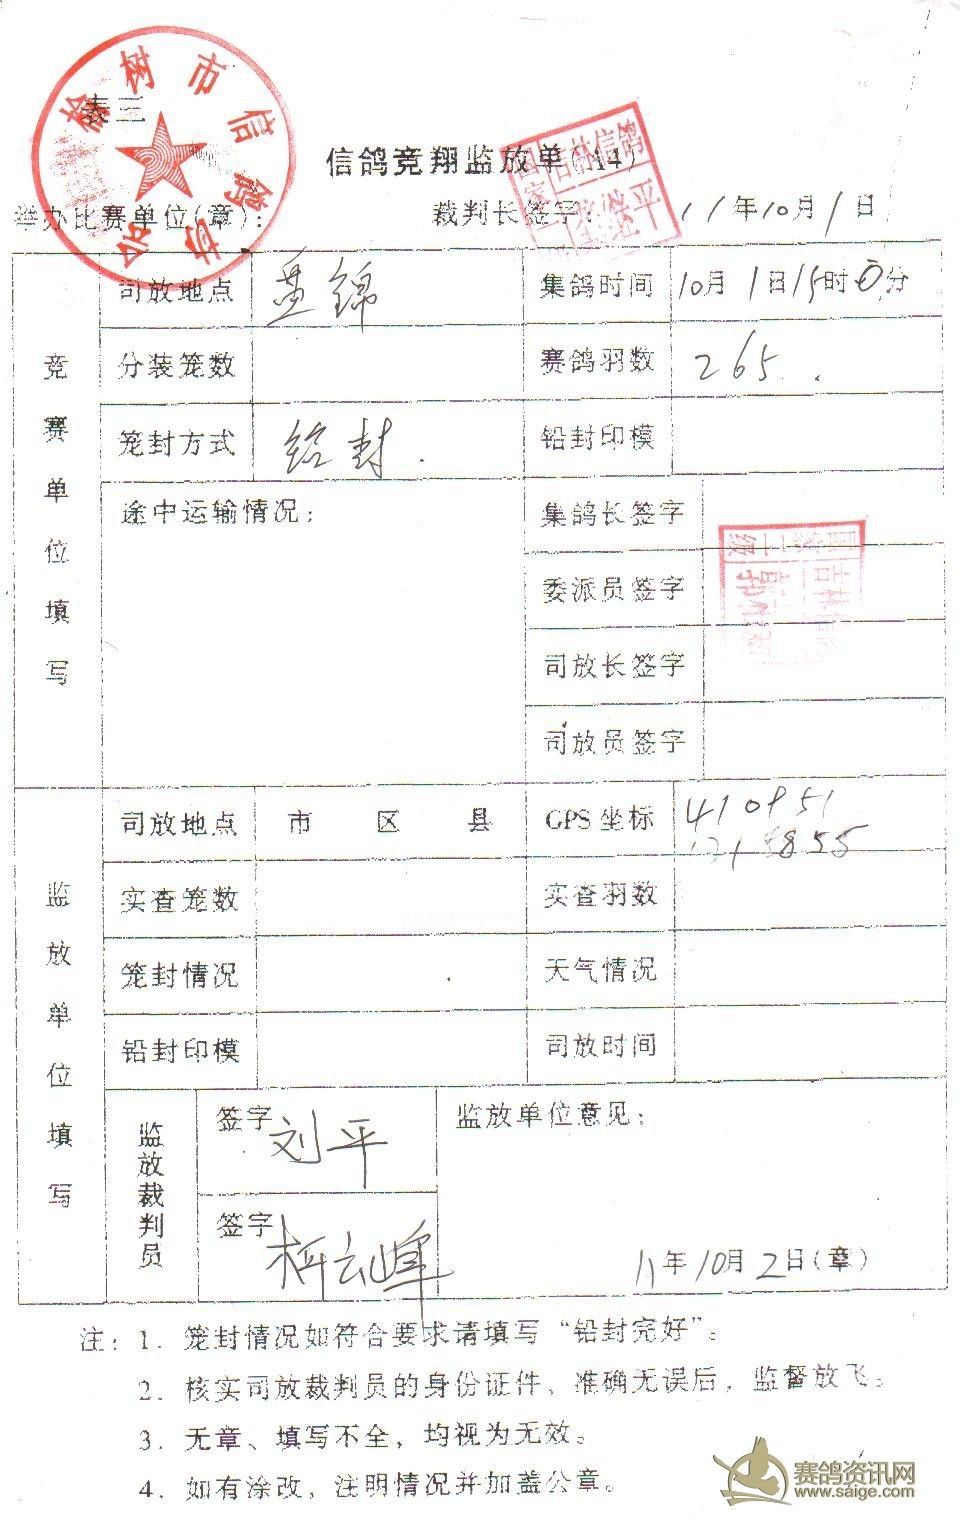 表三
榆树市信鸽协会
信鸽竞翔监放单(A4)
举办比赛单位(章): 裁判长签字: 11年10月1日
竞赛单位填写
司放地点 盘锦 集鸽时间 10月1日15时0分
分装笼数 赛鸽羽数 265.
笼封方式 铅封. 铅封印模
途中运输情况: 集鸽长签字
国家二级
吉林信鸽
委派员签字
司放长签字
司放员签字
监放单位填写
司放地点 市 区 县 GPS坐标 410951
1215855
实查笼数 实查羽数
笼封情况 天气情况
铅封印模 司放时间
监放裁判员
签字 刘平 监放单位意见:
签字 云峰 11年10月2日(章)
注: 1. 笼封情况如符合要求请填写“铅封完好”。
2. 核实司放裁判员的身份证件、准确无误后，监督放飞。
3. 无章、填写不全，均视为无效。
4. 如有涂改，注明情况并加盖公章。
赛鸽资讯网
www.saige.com